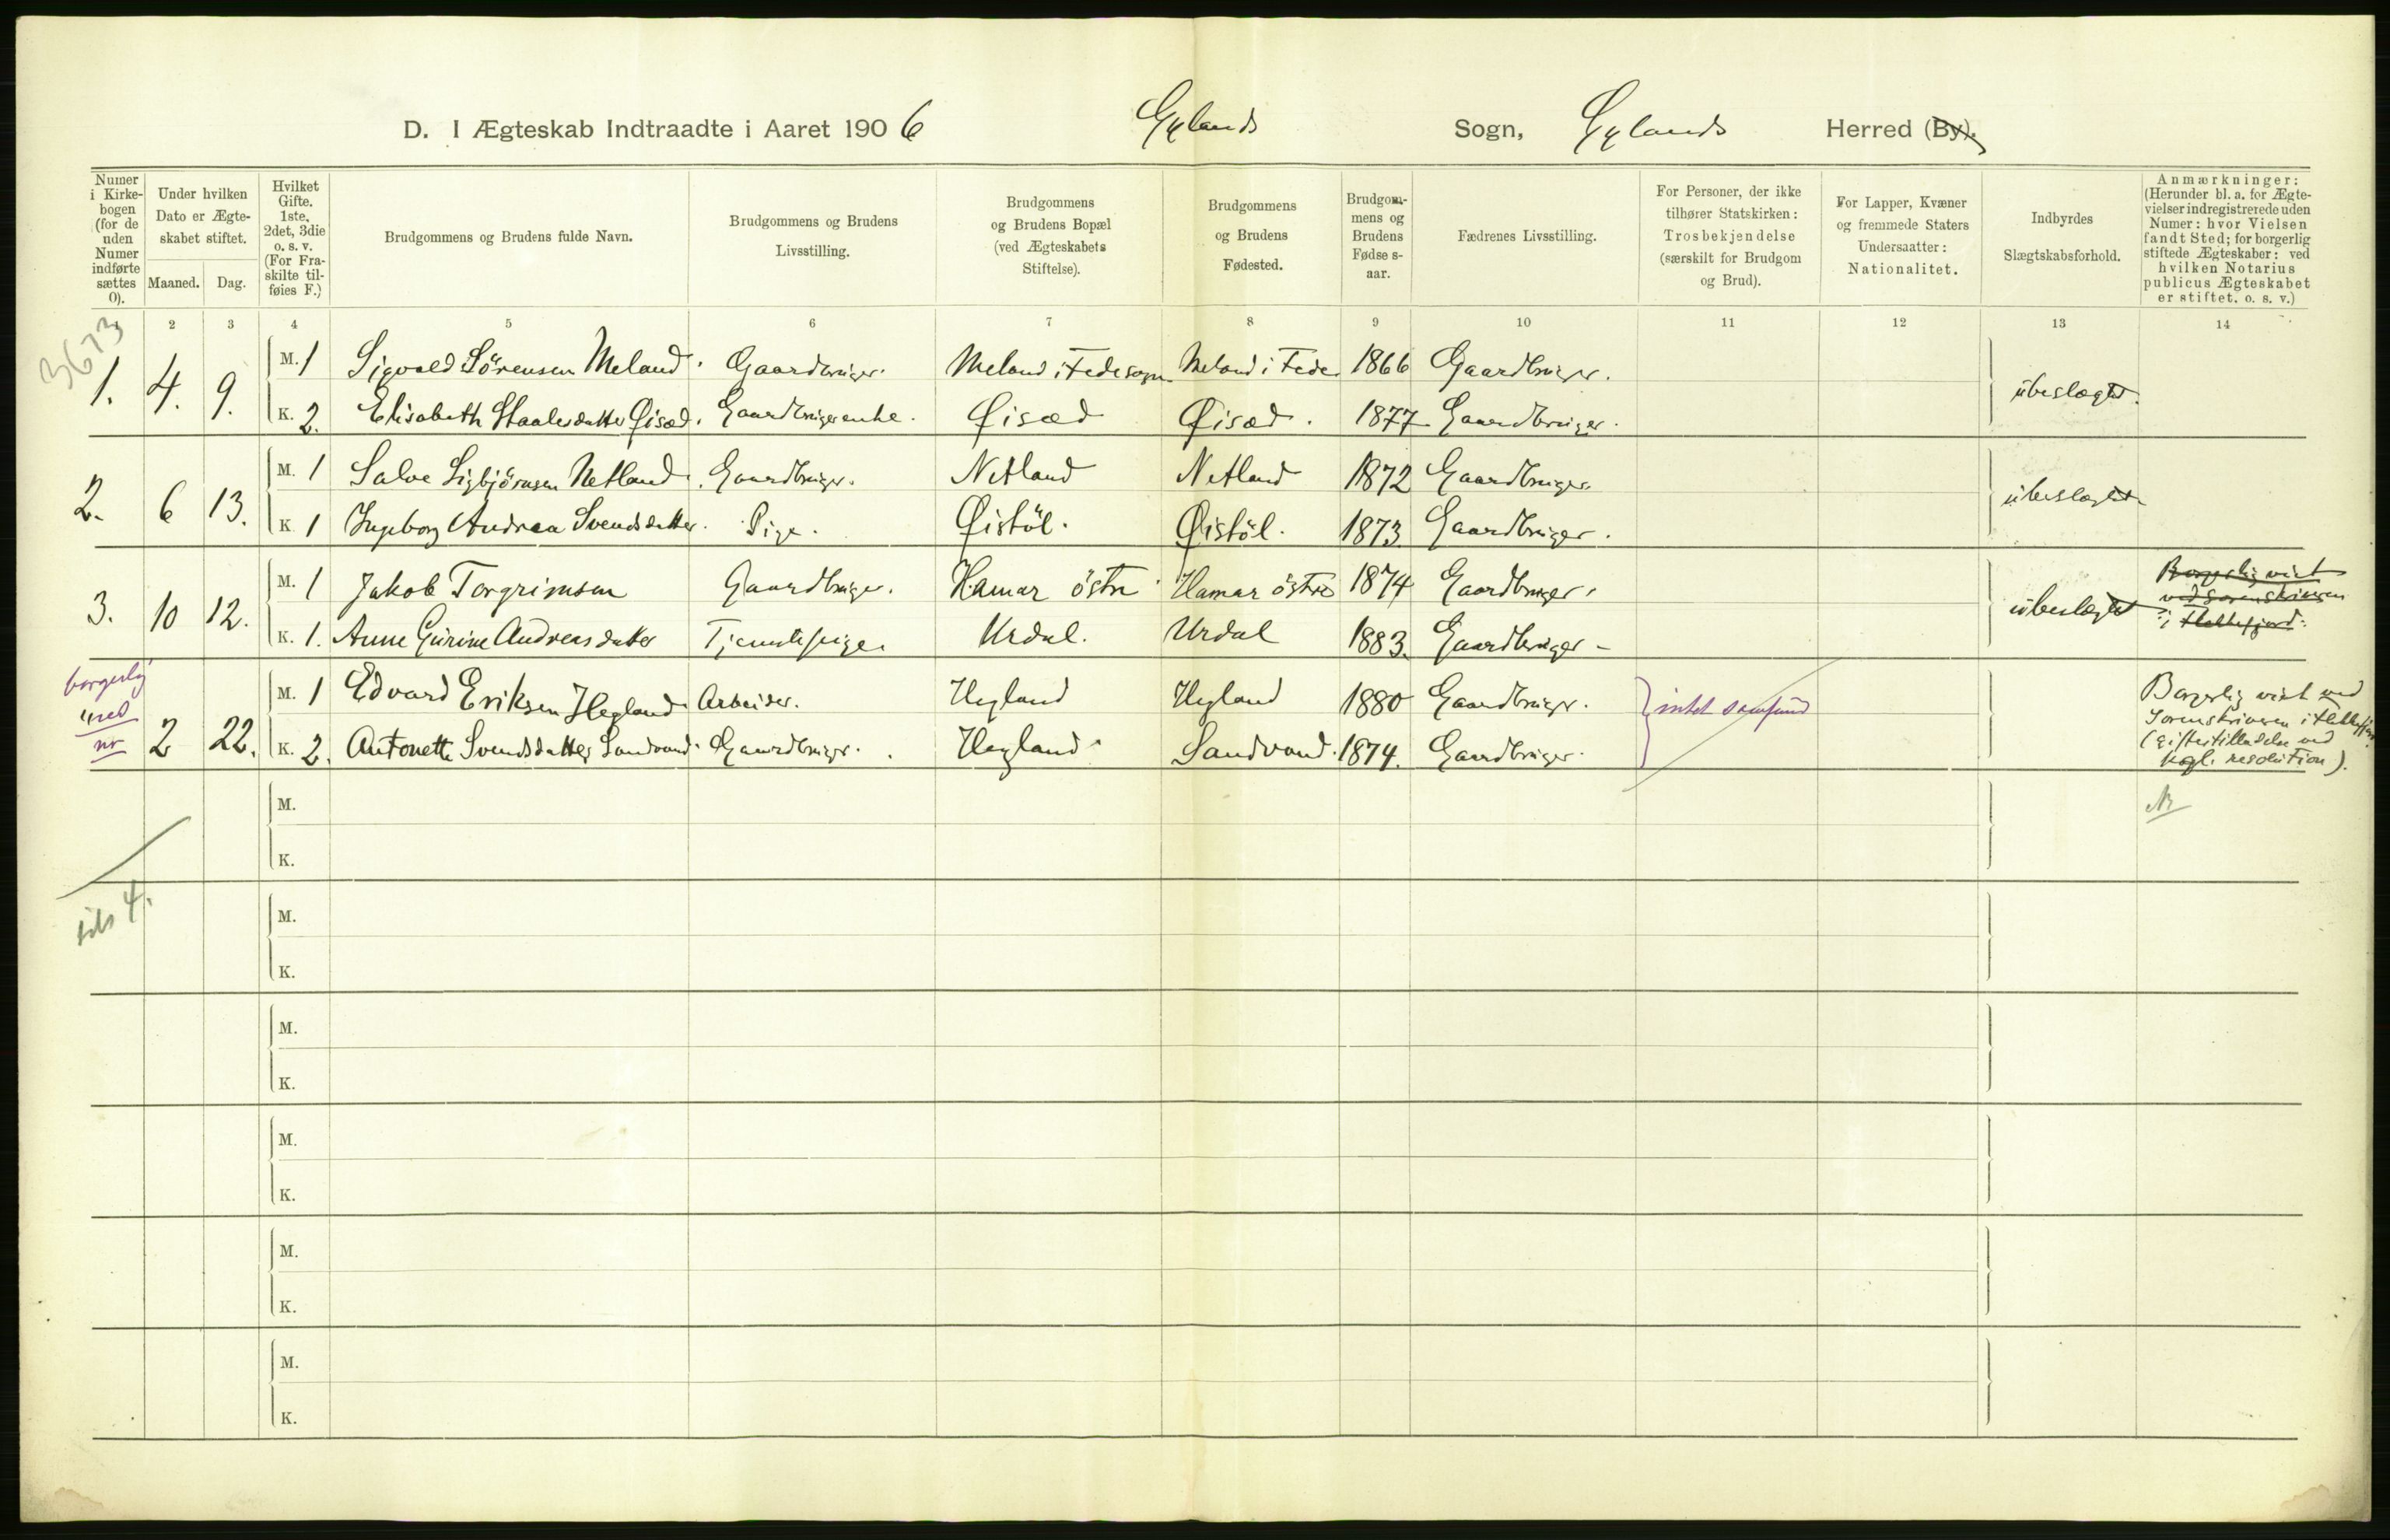 D. I Ægteskab Indtraadte i Aaret 1906 Gylands Sogn, Gylands Herred (By).
Numer i Kirkebogen (for de uden Numer indførte sættes 0).
Under hvilken Dato er Ægteskabet stiftet.
Maaned. Dag.
Hvilket Gifte. 1ste, 2det, 3die o. s. v. (For Fraskilte tilføies F.)
Brudgommens og Brudens fulde Navn.
Brudgommens og Brudens Livsstilling.
Brudgommens og Brudens Bopæl (ved Ægteskabets Stiftelse).
Brudgommens og Brudens Fødested.
Brudgommens og Brudens Fødselsaar.
Fædrenes Livsstilling.
For Personer, der ikke tilhører Statskirken: Trosbekjendelse (særskilt for Brudgom og Brud).
For Lapper, Kvæner og fremmede Staters Undersaatter: Nationalitet.
Indbyrdes Slægtskabsforhold.
Anmærkninger: (Herunder bl. a. for Ægtevielser indregistrerede uden Numer: hvor Vielsen fandt Sted; for borgerlig stiftede Ægteskaber: ved hvilken Notarius publicus Ægteskabet er stiftet. o. s. v.)
2 3 4 5 6 7 8 9 10 11 12 13 14
3673
1. 4. 9. M. 1 Sigvald Sörensen Meland. Gaardbruger. Meland i Fede sogn Meland i Fede 1866 Gaardbruger. ubeslægtet.
K. 2. Elisabeth Staalesdatter Øisæd. Gaardbrugerenke. Øisæd Øisæd. 1877 Gaardbruger.
2. 6 13. M. 1 Salve Sigbjörnsen Netland. Gaardbruger. Netland Netland 1872 Gaardbruger. ubeslægtet
K. 1 Ingeborg Andrea Svendsdatter. Pige. Øistöl. Øistöl. 1873. Gaardbruger.
3. 10 12. M. 1 Jakob Torgrimsen Gaardbruger. Hamar östre Hamar östre 1874 Gaardbruger. ubeslægtet Borgerlig viet ved Sorenskriveren i Flekkefjord.
K. 1. Anne Gurine Andreasdatter Tjenestepige. Urdal. Urdal 1883. Gaardbruger
borgerlig
2 22. M. 1 Edvard Eriksen Hegland Arbeider. Hegland Hegland 1880 Gaardbruger. intet samfund Borgerlig viet ved
Sorenskriveren i Flekkefjord.
K. 2. Antonette Svendsdatter Sandvand. Gaardbruger. Hegland Sandvand. 1874. Gaardbruger.
(Giftestilladelse ved
kgl. resolution).
M.
K.
4.
M.
K.
M.
K.
M.
K.
M.
K.
M.
K.